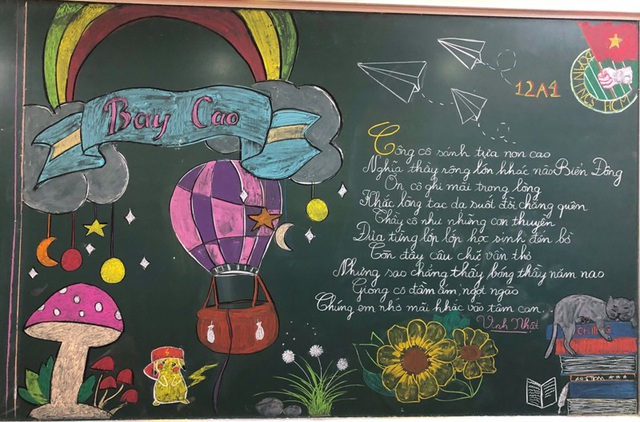 Bay Cao
12A1
ĐOÀN TNCS HCM
Công cô sánh tựa non cao
Nghĩa thầy sông lớn khác nào Biển Đông
Ơn cô ghi mãi trong lòng
Khắc lòng tạc dạ suốt đời chẳng quên
Thầy cô như những con thuyền
Đưa từng lớp lớp học sinh đến bờ
Còn đây câu chữ vần thơ
Nhưng sao chẳng thấy bóng thầy năm nao
Giọng cô đầm ấm, ngọt ngào
Chúng em nhớ mãi khắc vào tâm can.
Vĩnh Nhất